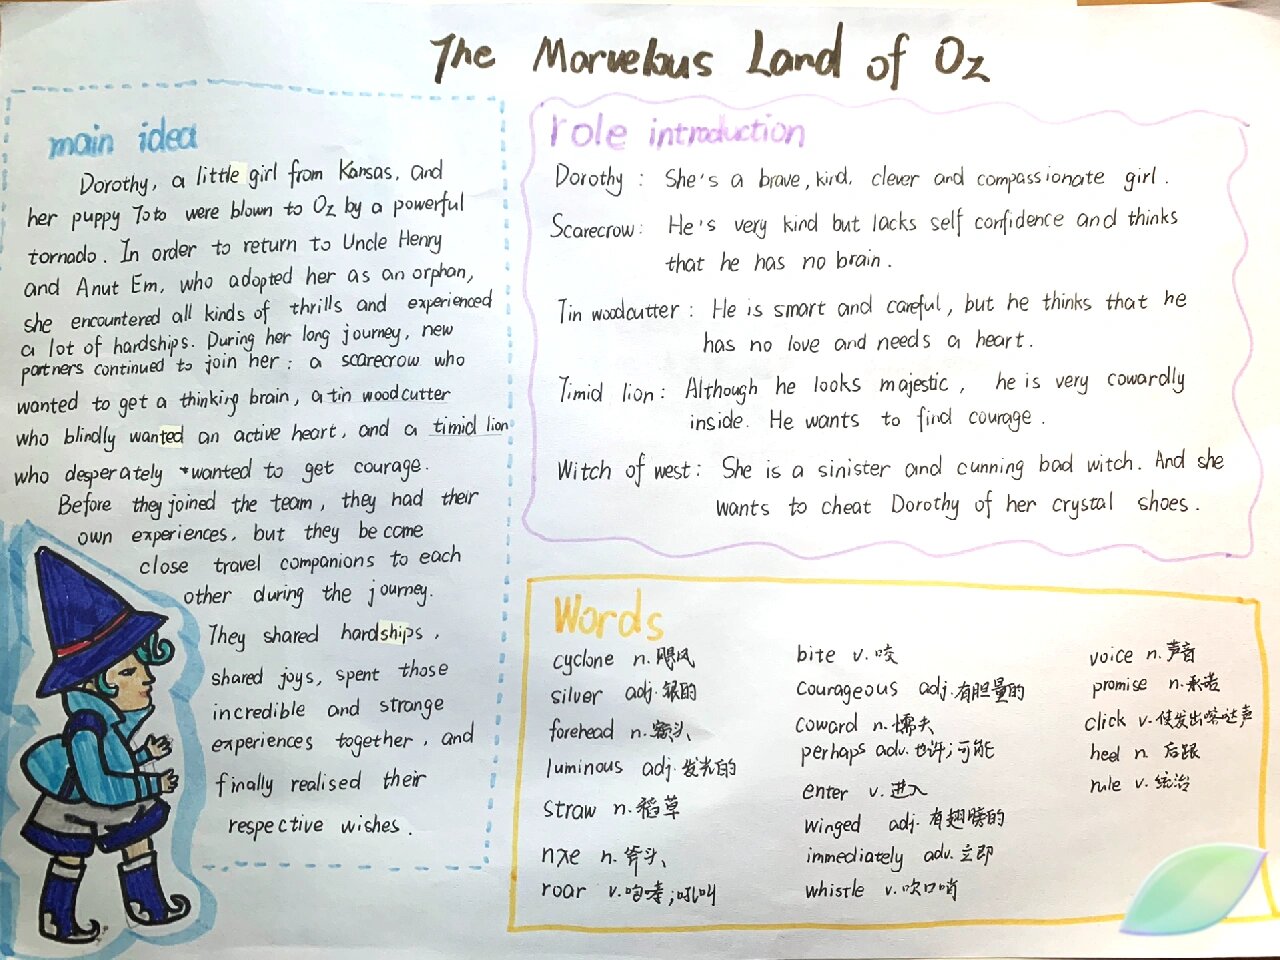 The Marvelous Land of Oz
main idea
Dorothy, a little girl from Kansas, and
her puppy Toto were blown to Oz by a powerful
tornado. In order to return to Uncle Henry
and Anut Em, who adopted her as an orphan,
she encountered all kinds of thrills and experienced
a lot of hardships. During her long journey, new
partners continued to join her: a scarecrow who
wanted to get a thinking brain, a tin woodcutter
who blindly wanted an active heart, and a timid lion
who desperately wanted to get courage.
Before they joined the team, they had their
own experiences, but they become
close travel companions to each
other during the journey.
They shared hardships,
shared joys, spent those
incredible and strange
experiences together, and
finally realised their
respective wishes.
role introduction
Dorothy: She's a brave, kind, clever and compassionate girl.
Scarecrow: He's very kind but lacks self confidence and thinks
that he has no brain.
Tin woodcutter: He is smart and careful, but he thinks that he
has no love and needs a heart.
Timid lion: Although he looks majestic, he is very cowardly
inside. He wants to find courage.
Witch of west: She is a sinister and cunning bad witch. And she
wants to cheat Dorothy of her crystal shoes.
Words
cyclone n. 飓风
silver adj. 银的
forehead n. 额头
luminous adj. 发光的
straw n. 稻草
axe n. 斧头
roar v. 咆哮;吼叫
bite v. 咬
courageous adj. 有胆量的
coward n. 懦夫
perhaps adv. 也许;可能
enter v. 进入
winged adj. 有翅膀的
immediately adv. 立即
whistle v. 吹口哨
voice n. 声音
promise n. 承诺
click v. 使发出咔哒声
heel n. 后跟
rule v. 统治